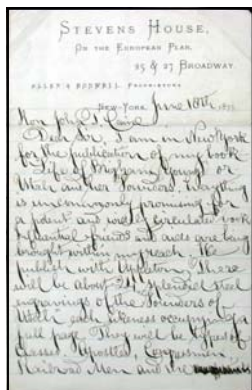 STEVENS HOUSE,
ON THE EUROPEAN PLAN,
25 & 27 BROADWAY.
PROPRIETORS
NEW-YORK, June 18th, 187
Hon John T. Caine
Dear Sir, I am in New York
for the publication of my book
Life of Brigham Young or
Utah and her Founders. Everything
is uncommonly promising for
a potent and widely circulated work
friends and aids are being
brought within my reach. We
publish with Appleton. There
will be about 25 splendid steel
engravings of the Founders of
Utah each likeness occupying a
full page. They will be types of
classes Apostles, Congressmen
Railroad Men and the